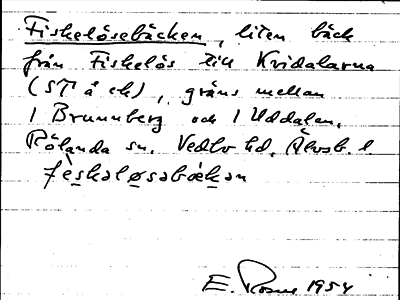 Fiskelösebäcken, liten bäck
från Fiskelös till Kvidalarna
(ST å ek), gräns mellan
1 Brunnberg och 1 Uddalen.
Rölanda sn. Vedbo hd, Älvsb. l.
feskaløsabækan
E. Rosne 1954